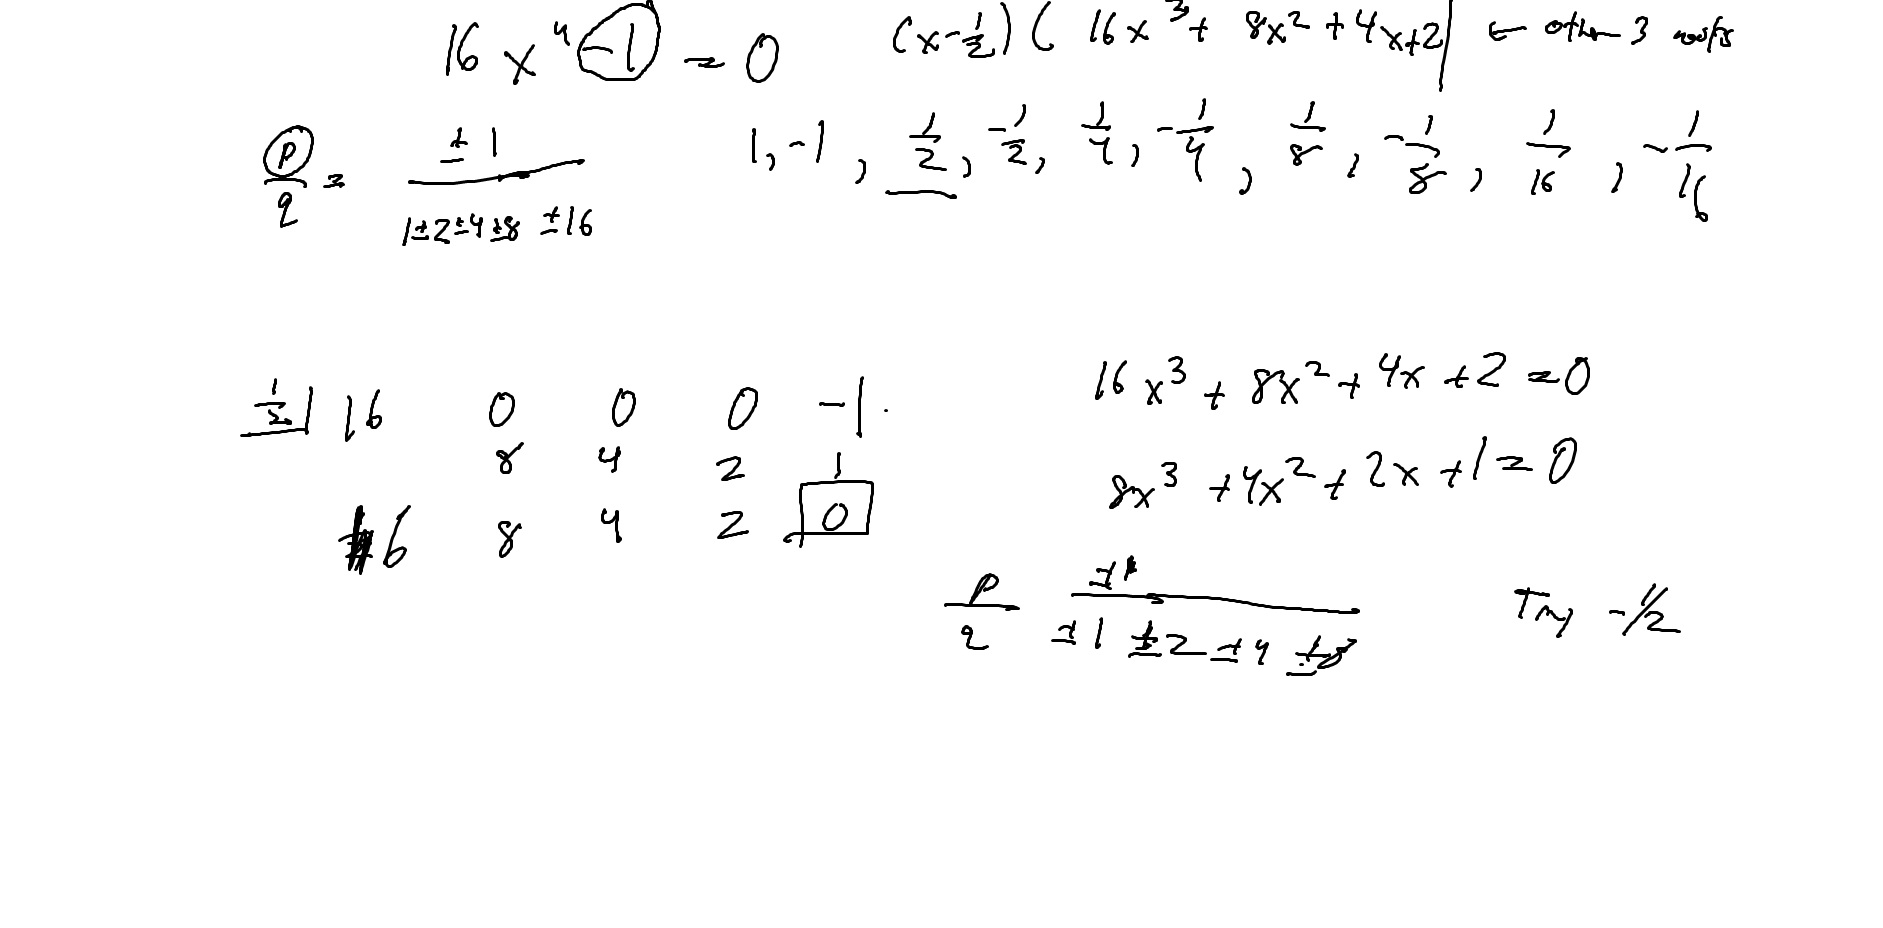 16x⁴ - 1 = 0
(x - 1/2) ( 16x³ + 8x² + 4x + 2 | ← other 3 roots
p/q = ±1 / 1 ±2 ±4 ±8 ±16
1, -1, 1/2, -1/2, 1/4, -1/4, 1/8, -1/8, 1/16, -1/16
1/2 | 16 0 0 0 -1
8 4 2 1
16 8 4 2 0
16x³ + 8x² + 4x + 2 = 0
8x³ + 4x² + 2x + 1 = 0
p/q ±1 / ±1 ±2 ±4 ±8
Try -1/2